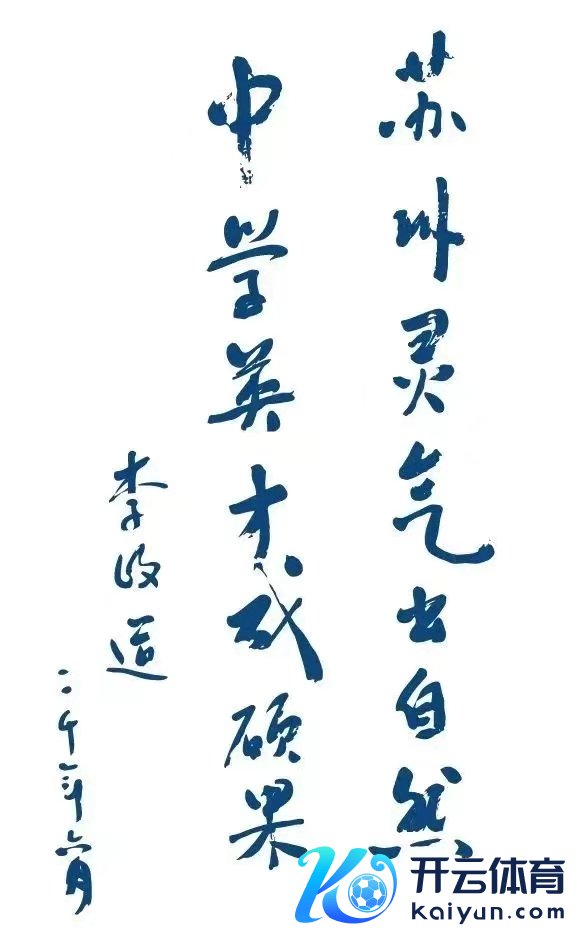 苏州灵气出自然
中学英才成硕果
李政道
二千年六月
开云体育
kaiyun.com